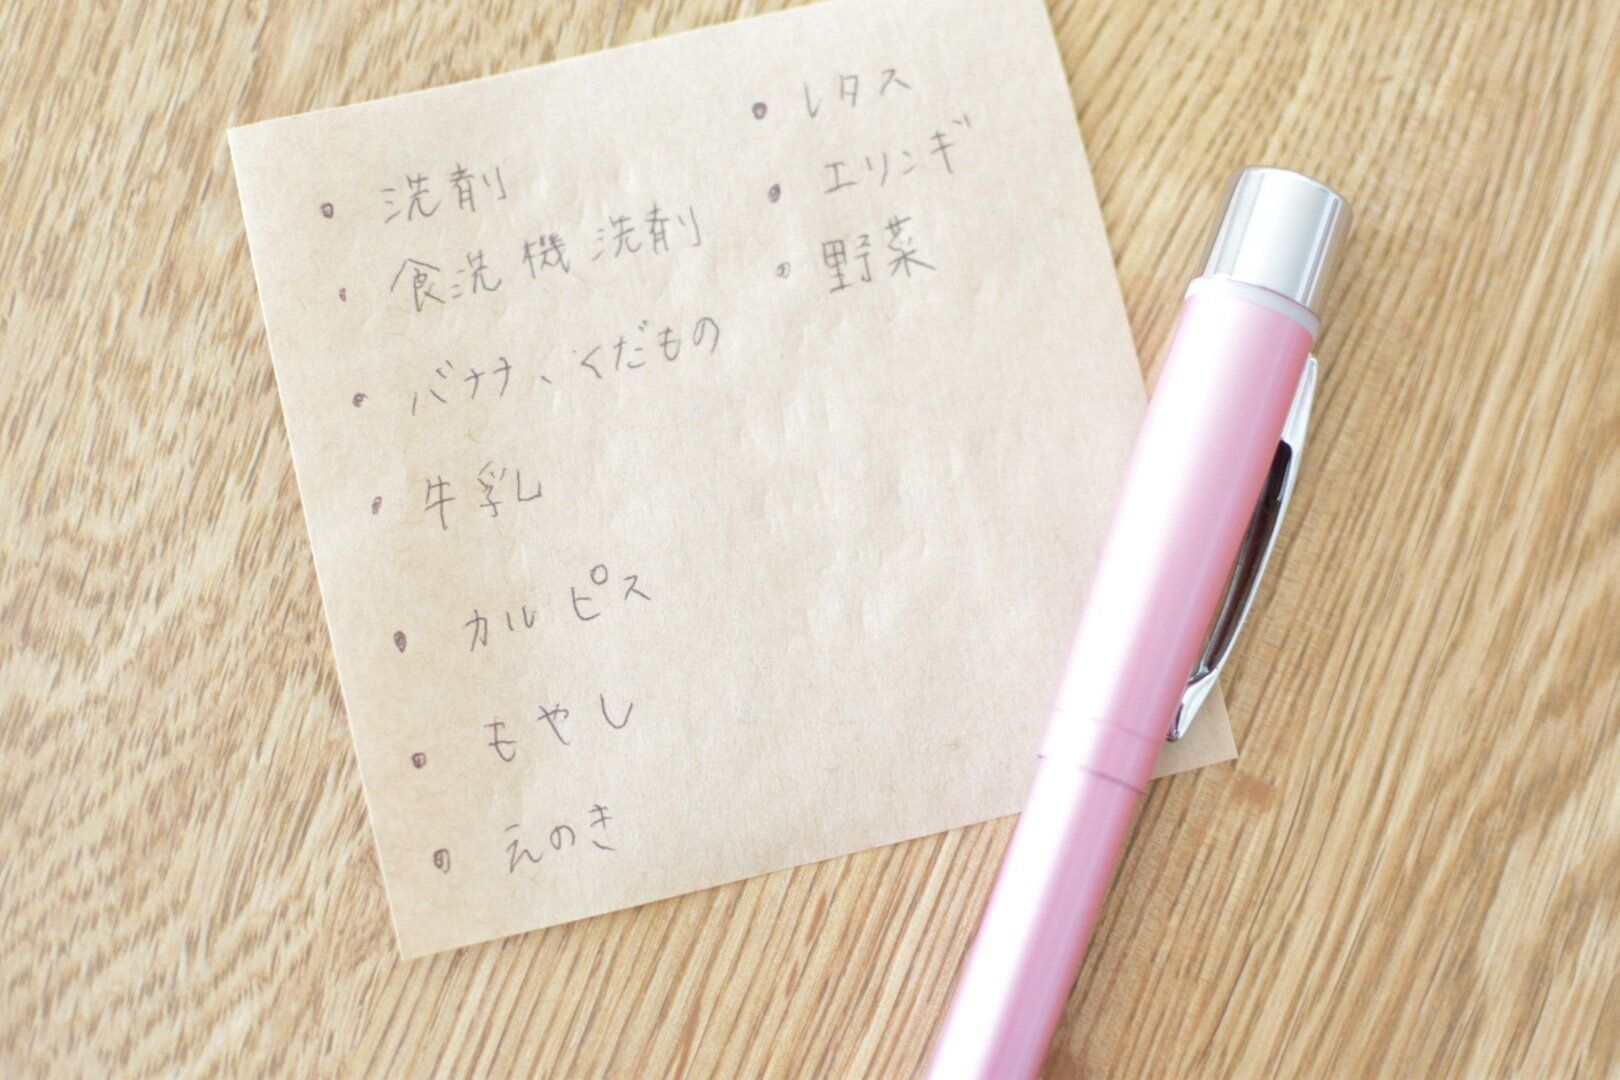 ・洗剤
・食洗機洗剤
・バナナ、くだもの
・牛乳
・カルピス
・もやし
・えのき
・レタス
・エリンギ
・野菜